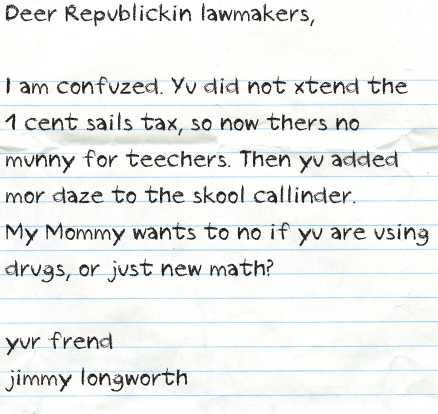 Deer Repvblickin lawmakers,
I am confvzed. Yv did not xtend the
1 cent sails tax, so now thers no
mvnny for teechers. Then yv added
mor daze to the skool callinder.
My Mommy wants to no if yv are vsing
drvgs, or jvst new math?
yvr frend
jimmy longworth